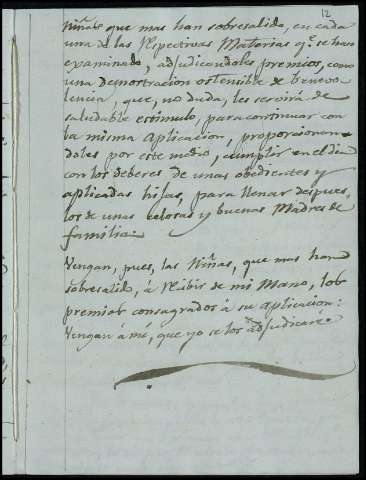 12
niñas que mas han sobresalido, en cada
una de las respectivas Materias qe. se han
examinado, adjudicandoles premios, como
una demostracion ostensible de benevo
lencia, que, no duda, les servirá de
saludable estimulo, para continuar con
la misma aplicacion, proporcionan
doles por este medio, cumplir en el dia
con los deberes de unas obedientes y
aplicadas hijas, para llenar despues,
los de unas celosas y buenas Madres de
familia.
Vengan, pues, las Niñas, que mas han
sobresalido, á recibir de mi Mano, los
premios consagrados á su aplicacion:
Vengan á mí, que yo se los adjudicaré.